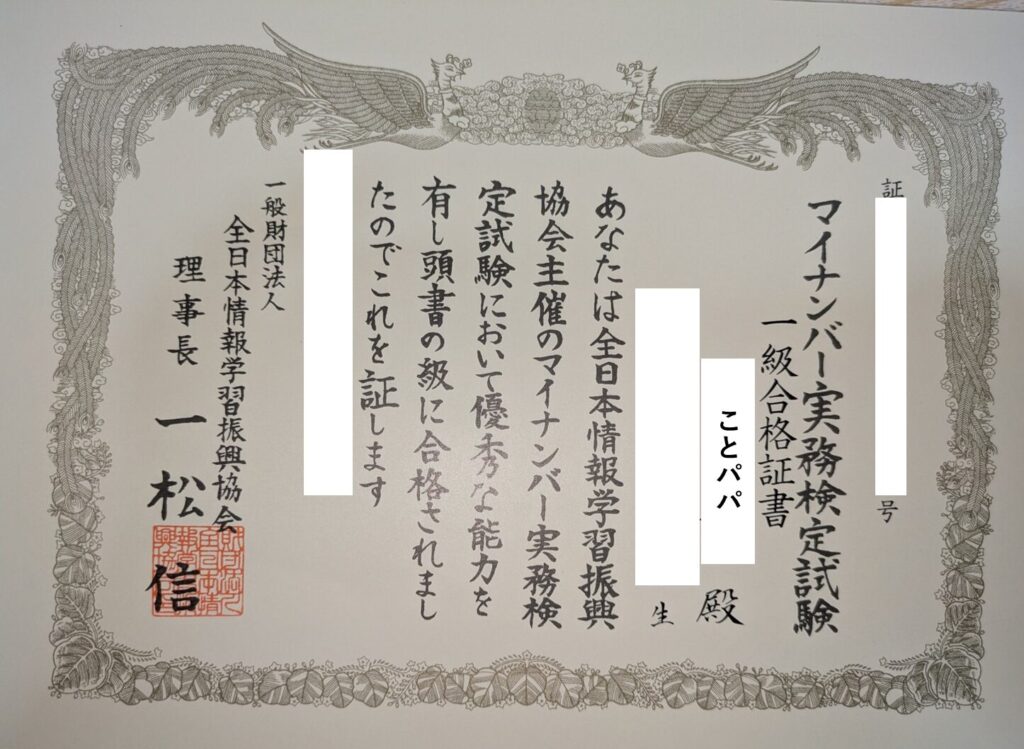 証
号
マイナンバー実務検定試験
一級合格証書
ことパパ
殿
生
あなたは全日本情報学習振興
協会主催のマイナンバー実務検
定試験において優秀な能力を
有し頭書の級に合格されまし
たのでこれを証します
一般財団法人
全日本情報学習振興協会
理事長 一松 信